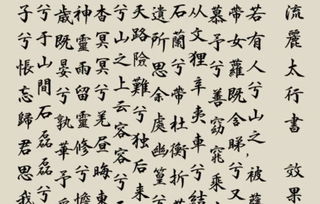 流麗太行書 效果
若有人兮山之,被
帶女蘿既含睇兮又
慕予兮善窈窕乘
从文狸辛夷車兮結
石蘭兮帶杜衡折
遺所思余處幽篁
天路險難兮独后来
兮山之上云容容兮
冥兮羌昼晦東
神靈雨留靈修憺
歲既晏兮孰華予
兮于山間石磊磊
子兮悵忘歸君思我